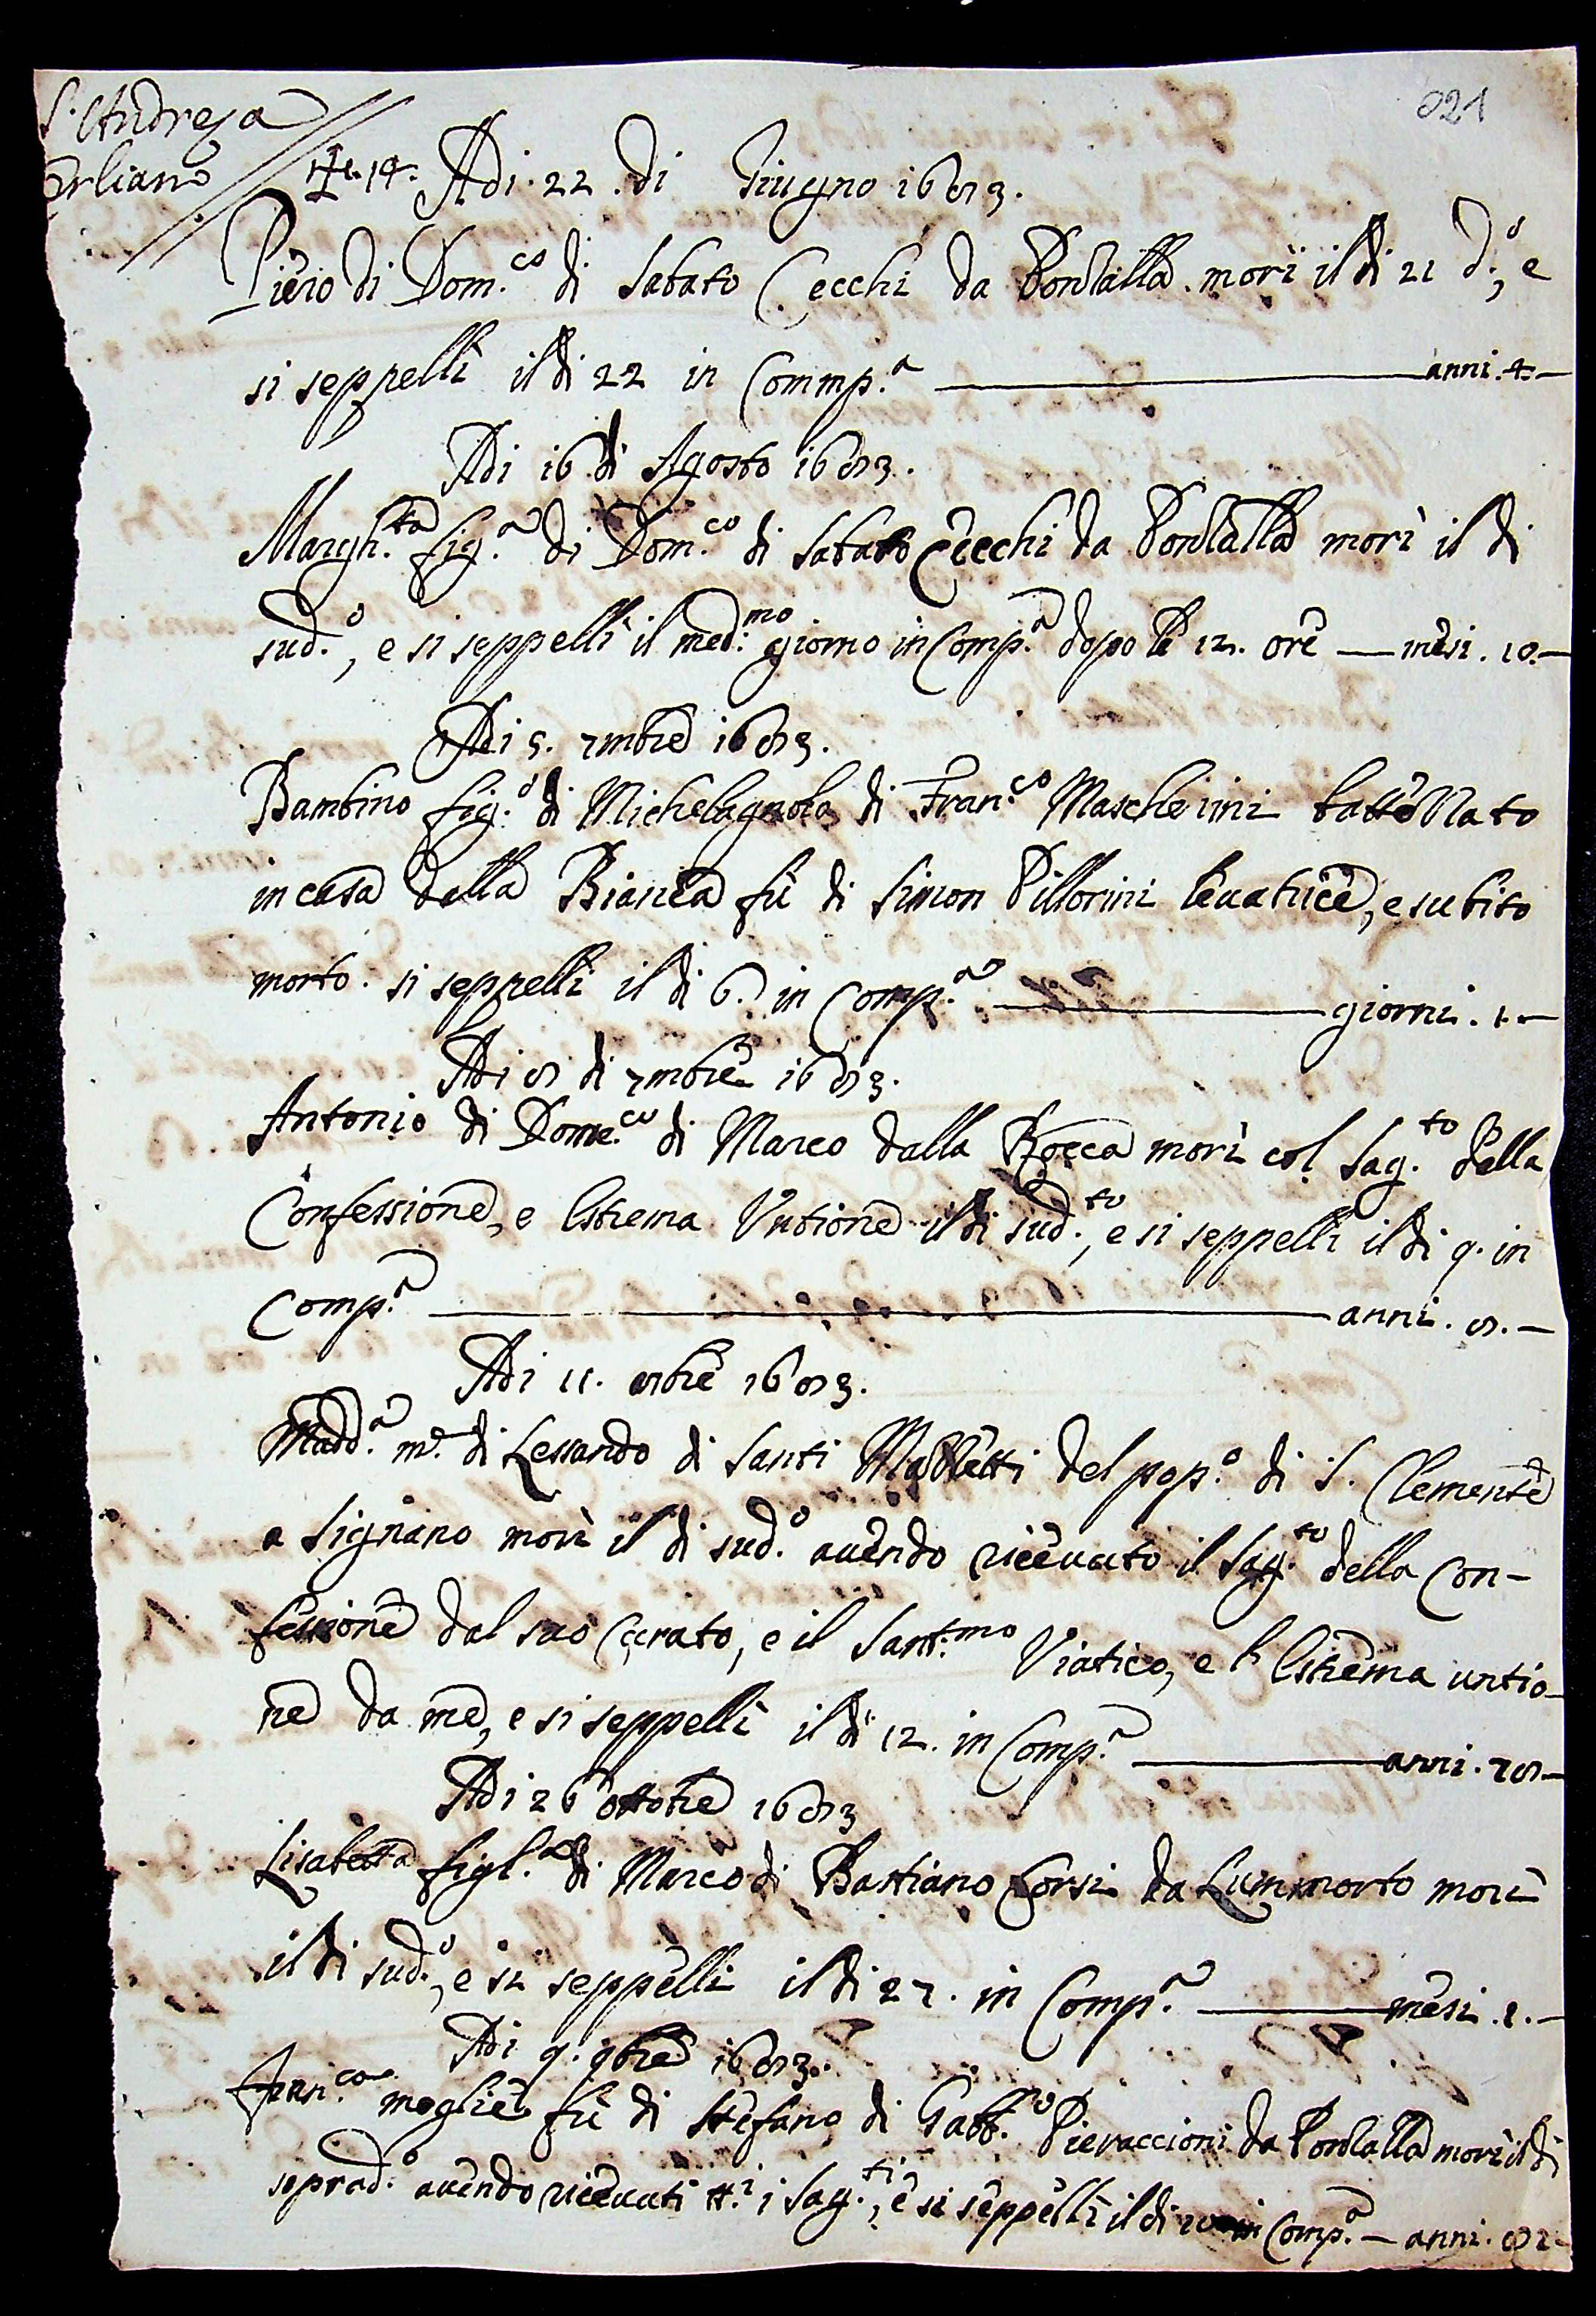 021
S. Andrea
Orliano
N.º 14. Adi 22. di Giugno 1683.
Piero di Dom.co di Sabato Cecchi da Pontalla. morì il di 21 d.o, e
si seppellì il di 22 in Commp.a — anni. 4. —
Adi 16 di Agosto 1683.
Margh.ta fig.a di Dom.co di Sabato Cecchi da Pontalla morì il di
sud.o, e si seppellì il med.mo giorno in Comp.a dopo le 12. ore — mesi. 10. —
Adi 5. 7mbre 1683.
Bambino fig.o di Michelagnolo di Fran.co Mascherini batt.o Nato
in casa della Bianca fù di Simon Pillorini levatrice, e subito
morto. si seppellì il di 6. in Comp.a — giorni. 1. —
Adi 8 di 7mbre 1683.
Antonio di Dome.co di Marco dalla Rocca morì col Sag.to della
Confessione, e Estrema Untione il di sud.to, e si seppellì il di 9. in
Comp.a — anni. 8. —
Adi 11. 8bre 1683.
Madd.a m.e di Lessandro di Santi Malletti del pop.o di S. Clemente
a Signano morì il di sud.o avendo ricevuto il Sag.to della Con-
fessione dal suo Curato, e il Sant.mo Viatico, e l'Estrema untio-
ne da me, e si seppellì il di 12. in Comp.a — anni. 78 —
Adi 26 ottobre 1683
Lisabetta figl.a di Marco di Bastiano Corsi da Lummorto morì
il di sud.o, e si seppellì il di 27. in Comp.a — mesi. 1. —
Adi 9. 9bre 1683.
Fran.ca moglie fù di Stefano di Gabb.o Pieraccioni da Pontalla morì il di
soprad.o avendo ricevuti tt.i i Sag.ti, e si seppellì il di 10 in Comp.a — anni. 82 —